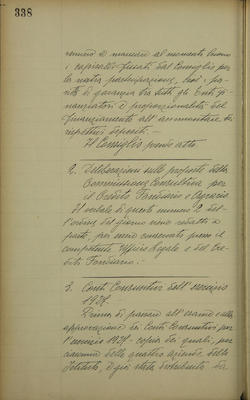 338
nominò e mancano al momento buono
i capisaldi fissati dal Consiglio per
la nostra partecipazione, cioè: pa-
rità di garanzia tra tutti gli Enti fi-
nanziatori e proporzionalità del
finanziamento all'ammontare dei
rispettivi depositi.-
Il Consiglio prende atto
2. Deliberazioni sulle proposte della
Commissione Consultiva per
il Credito Fondiario e Agrario
Il verbale di questo numero 2 del-
l'ordine del giorno viene redatto a
parte, per venir conservato presso il
competente Ufficio Legale e del Cre-
dito Fondiario.-
3. Conti Consuntivi dell'esercizio
1937.
Prima di passare all'esame e alla
approvazione dei Conti Consuntivi per
l'esercizio 1937 - copia dei quali, per
ciascuna delle quattro aziende dello
Istituto, è già stata